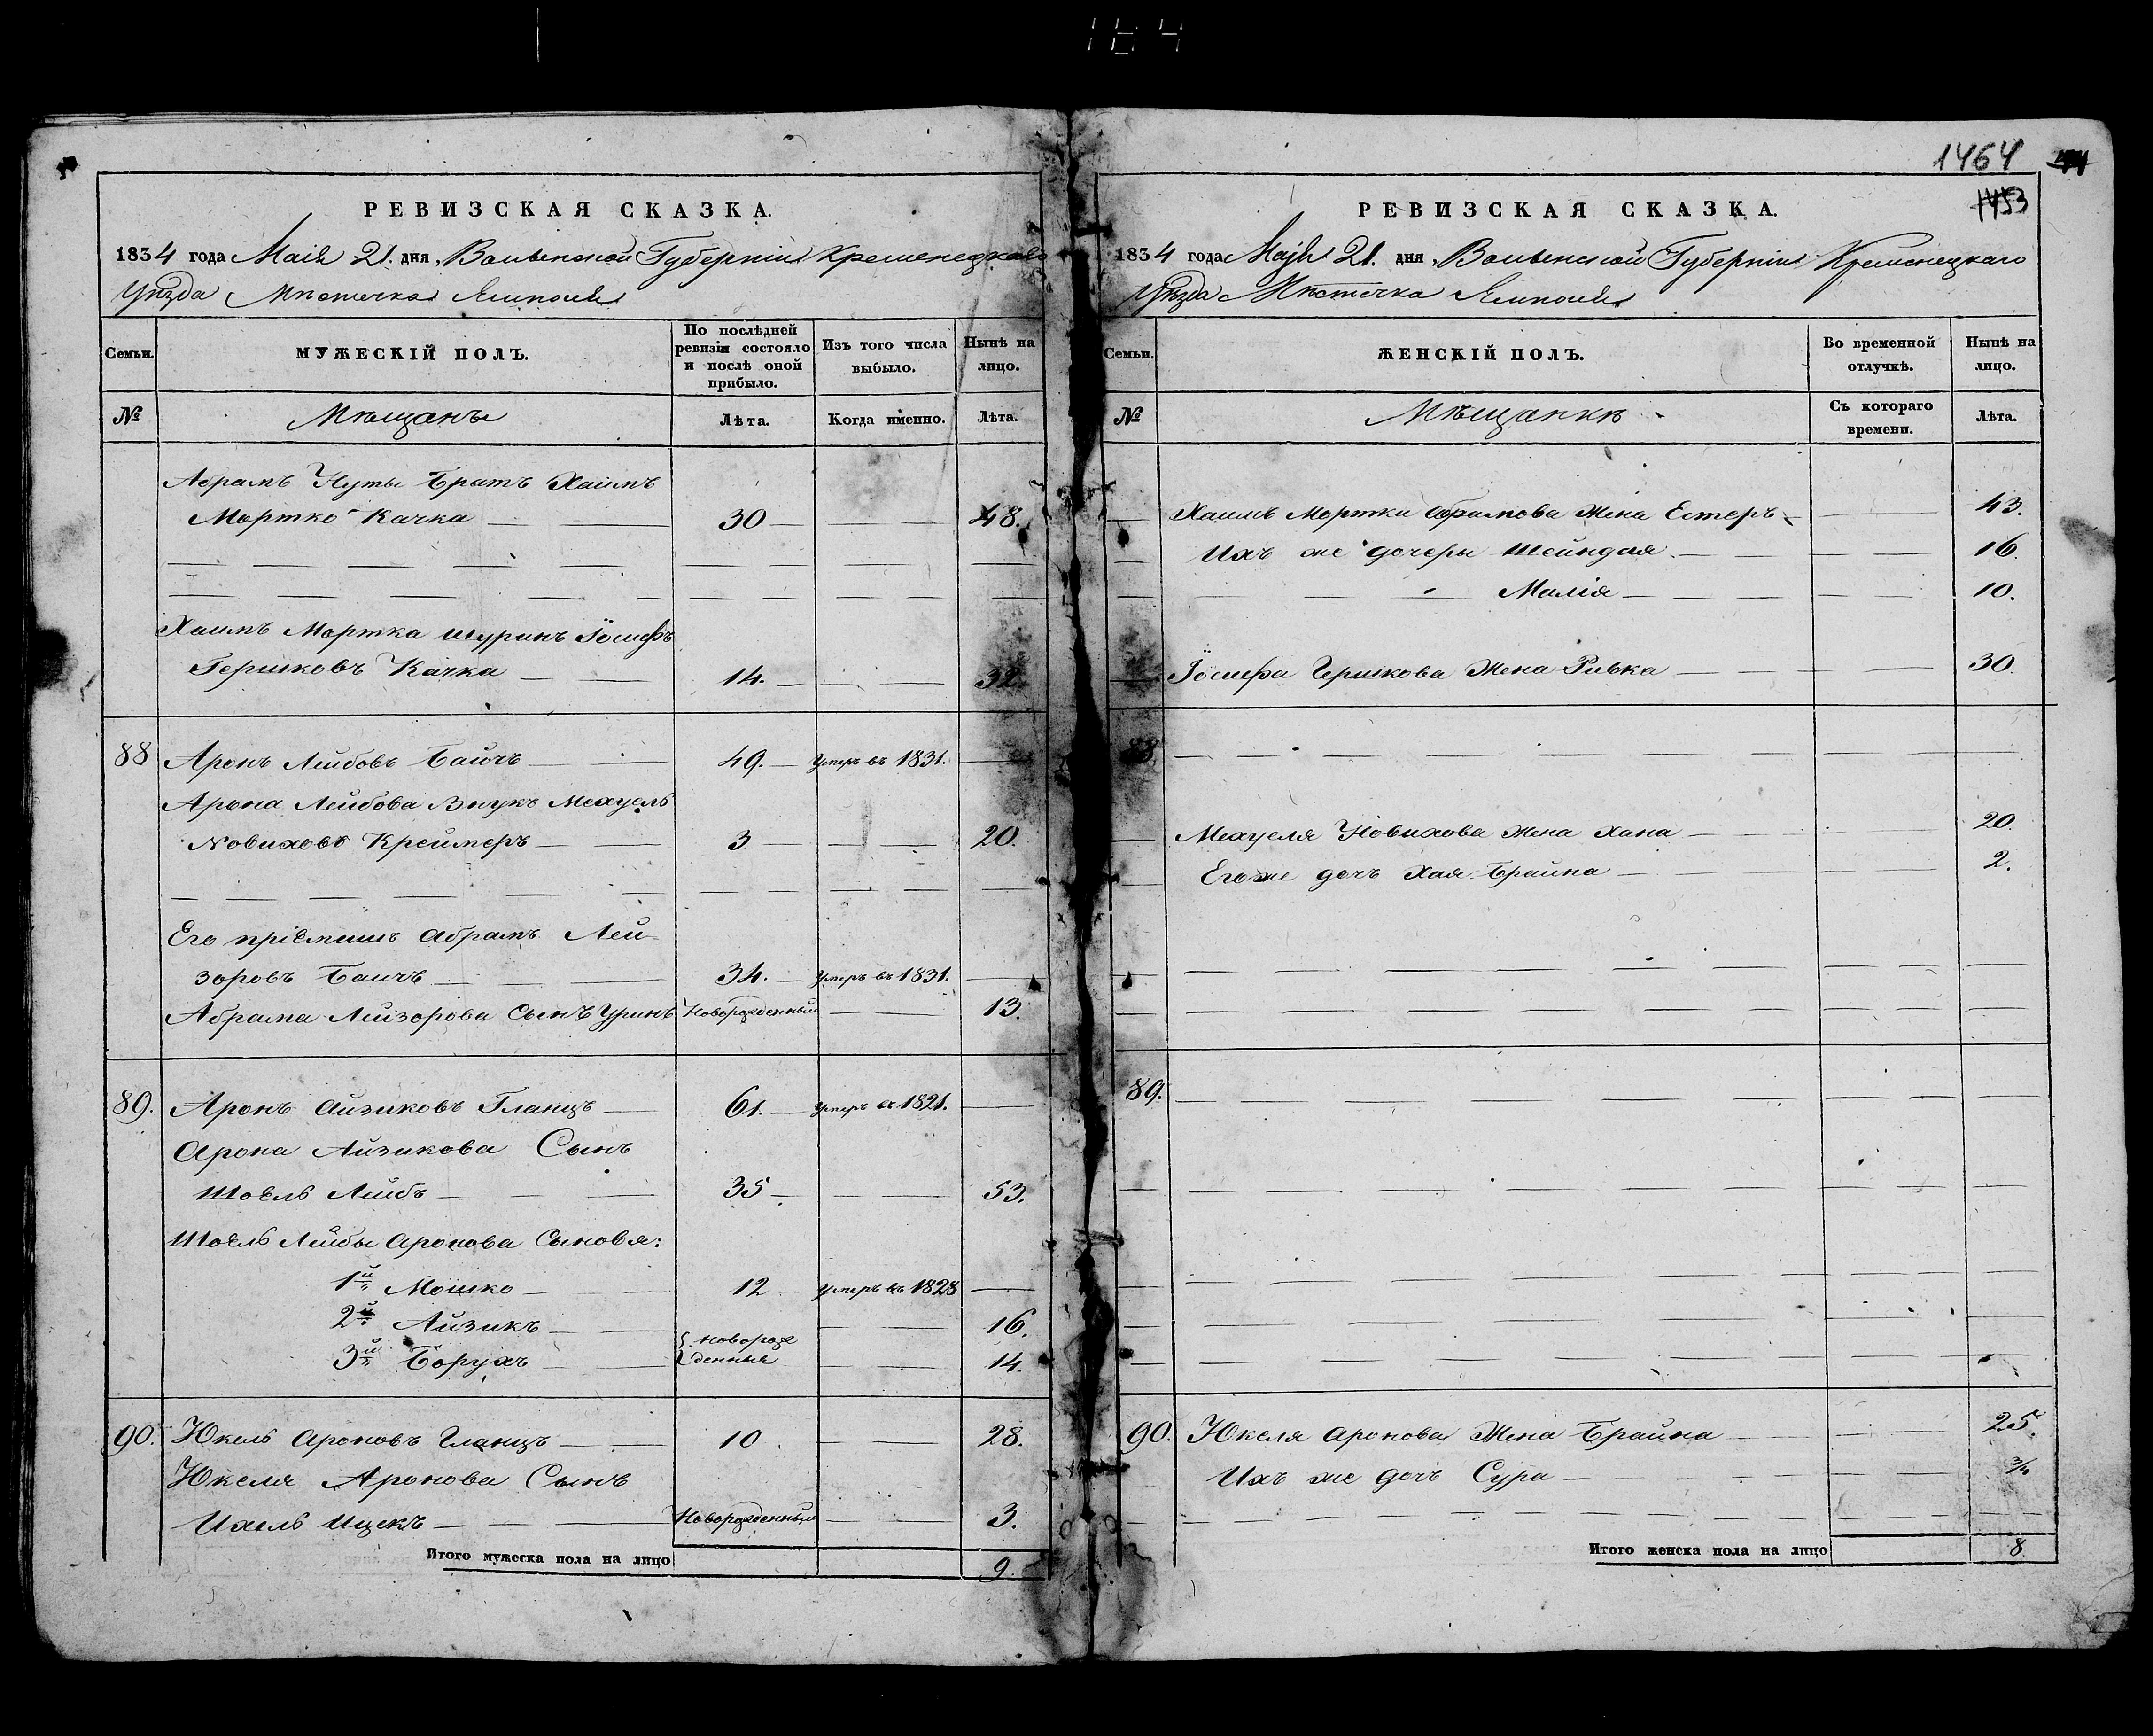 184
1464
1453
РЕВИЗСКАЯ СКАЗКА.
1834 года Маія 21. дня, Волынской Губерніи Кременецкаго
Уѣзда Мѣстечка Ямполя
Семьи.
МУЖЕСКІЙ ПОЛЪ.
По послѣдней ревизіи состояло и послѣ оной прибыло.
Изъ того числа выбыло.
Нынѣ на лицо.
№
Мѣщанъ
Лѣта.
Когда именно.
Лѣта.
Абрамъ Нуты Братъ Хаимъ
Мортко Качка 30 48.
Хаимъ Мортка шуринъ Іосифъ
Гершковъ Качка 14. 32.
88 Аронъ Лейбовъ Баичъ 49. Умеръ въ 1831.
Арона Лейбова Внукъ Мехуель
Новиховъ Креймеръ 3 20.
Его пріемышъ Абрамъ Лей-
зоровъ Баичъ 34. Умеръ въ 1831.
Абрама Лейзорова Сынъ Уринъ Новорожденный 13.
89. Аронъ Айзиковъ Гланцъ 61. Умеръ въ 1821.
Арона Айзикова Сынъ
Шоель Лейбъ 35 53.
Шоель Лейбы Аронова Сыновья:
1й Мошко 12 Умеръ въ 1828
2й Айзикъ 16.
новорож
3й Борухъ денные 14.
90. Юкель Ароновъ Гланцъ 10 28.
Юкеля Аронова Сынъ
Ихель Ицекъ Новорожденный 3.
Итого мужеска пола на лицо 9.
РЕВИЗСКАЯ СКАЗКА.
1834 года Маjя 21. дня, Волынской Губерніи Кременецкаго
Уѣзда Мѣстечка Ямполя
Семьи.
ЖЕНСКІЙ ПОЛЪ.
Во временной отлучкѣ.
Нынѣ на лицо.
№
Мѣщанкѣ
Съ котораго времени.
Лѣта.
Хаимъ Мортки Абрамова Жена Естеръ 43.
Ихъ же дочеры Шейндля 16.
Малія 10.
Іосифа Гершкова Жена Ривка 30.
88
Мехуеля Новихова жена Хана 20.
Его же дочъ Хая Брайна 2.
89.
90. Юкеля Аронова Жена Брайна 25.
Ихъ же дочъ Сура
Итого женска пола на лицо 8